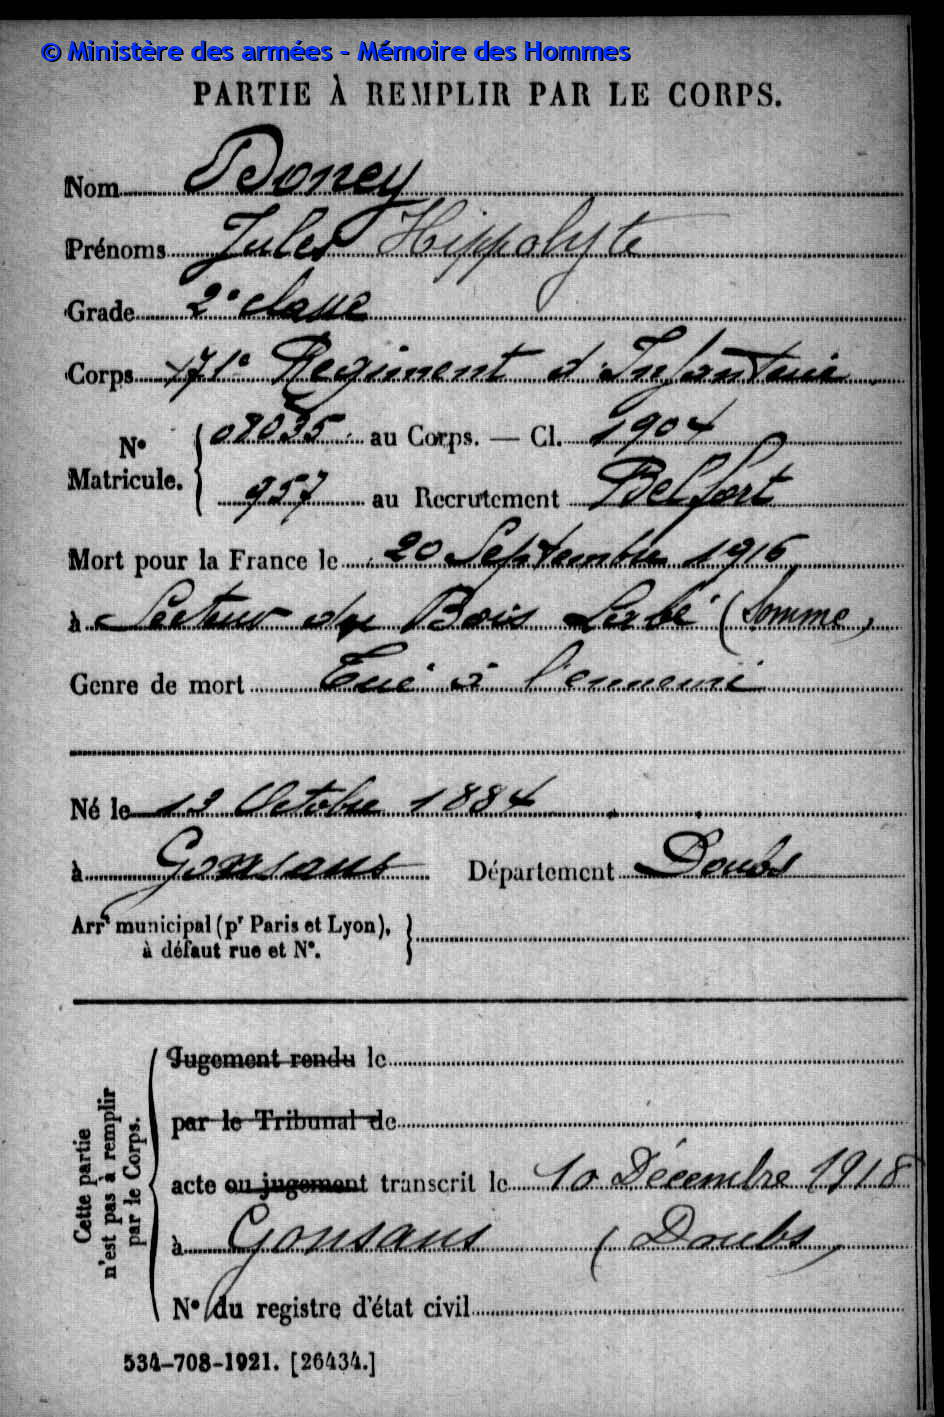 © Ministère des armées - Mémoire des Hommes
PARTIE À REMPLIR PAR LE CORPS.
Nom Boney
Prénoms Jules Hippolyte
Grade 2e classe
Corps 171e Régiment d'Infanterie
N° Matricule. 08035 au Corps. — Cl. 1904
957 au Recrutement Belfort
Mort pour la France le 20 Septembre 1916
à Secteur du Bois Labé (Somme)
Genre de mort Tué à l'ennemi
Né le 13 Octobre 1884
à Gonsans Département Doubs
Arrt municipal (pr Paris et Lyon),
à défaut rue et N°.
Cette partie
n'est pas à remplir
par le Corps.
Jugement rendu le
par le Tribunal de
acte ou jugement transcrit le 10 Décembre 1918
à Gonsans (Doubs)
N° du registre d'état civil
534-708-1921. [26434.]